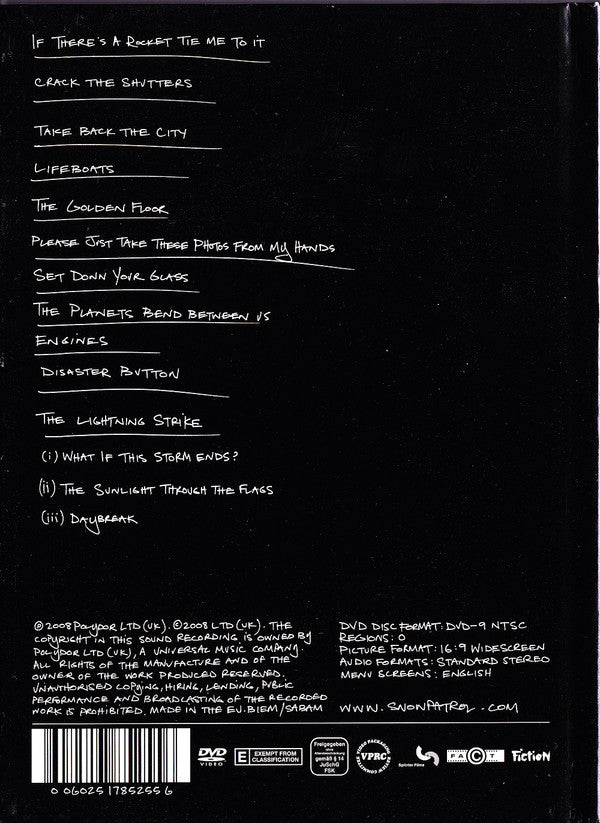 IF THERE'S A ROCKET TIE ME TO IT
CRACK THE SHUTTERS
TAKE BACK THE CITY
LIFEBOATS
THE GOLDEN FLOOR
PLEASE JUST TAKE THESE PHOTOS FROM MY HANDS
SET DOWN YOUR GLASS
THE PLANETS BEND BETWEEN US
ENGINES
DISASTER BUTTON
THE LIGHTNING STRIKE
(i) WHAT IF THIS STORM ENDS?
(ii) THE SUNLIGHT THROUGH THE FLAGS
(iii) DAYBREAK
℗2008 POLYDOR LTD (UK). ©2008 LTD (UK). THE
COPYRIGHT IN THIS SOUND RECORDING IS OWNED BY
POLYDOR LTD (UK), A UNIVERSAL MUSIC COMPANY.
ALL RIGHTS OF THE MANUFACTURE AND OF THE
OWNER OF THE WORK PRODUCED RESERVED.
UNAUTHORISED COPYING, HIRING, LENDING, PUBLIC
PERFORMANCE AND BROADCASTING OF THE RECORDED
WORK IS PROHIBITED. MADE IN THE EU. BIEM/SABAM
DVD DISC FORMAT: DVD-9 NTSC
REGIONS: 0
PICTURE FORMAT: 16:9 WIDESCREEN
AUDIO FORMATS: STANDARD STEREO
MENU SCREENS: ENGLISH
WWW.SNOWPATROL.COM
0 060251 785255 6
DVD
VIDEO
E EXEMPT FROM
CLASSIFICATION
Freigegeben
ohne
Altersbeschränkung
gemäß § 14
JuSchG
FSK
VIDEO PACKAGING
VPRC
REVIEW COMMITTEE
Splinter Films
FACT
Fiction